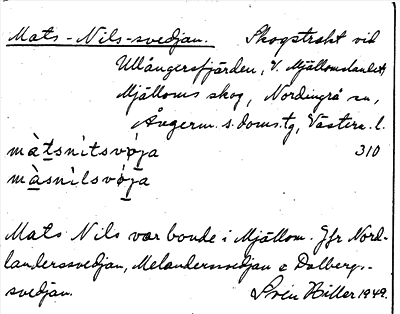 Mats-Nils-svedjan. Skogstrakt vid
Ullångersfjärden, V. Mjällomslandet,
Mjälloms skog, Nordingrå sn,
Ångerm. s. doms. tg, Västern. l.
màtsnìtsvø̀ja 310
màsnìlsvø̀ja
Mats Nils var bonde i Mjällom. Jfr Nord-
landerssvedjan, Melanderssvedjan o Dalbergs-
svedjan. Sven Hiller 1949.